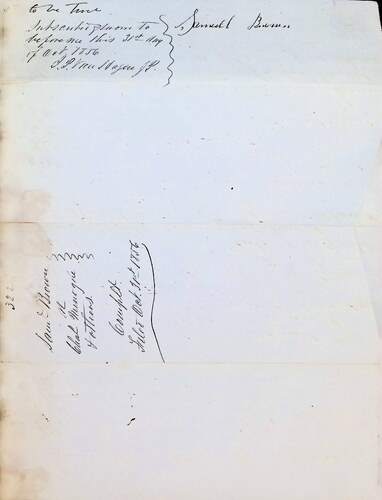 to be true
Subscribed & sworn to
before me this 31st day
of Oct. 1856
J.P.
Samuell Brown
Saml Brown
vs
Chas
& others
Compt.
Filed Oct. 31st 1856
322